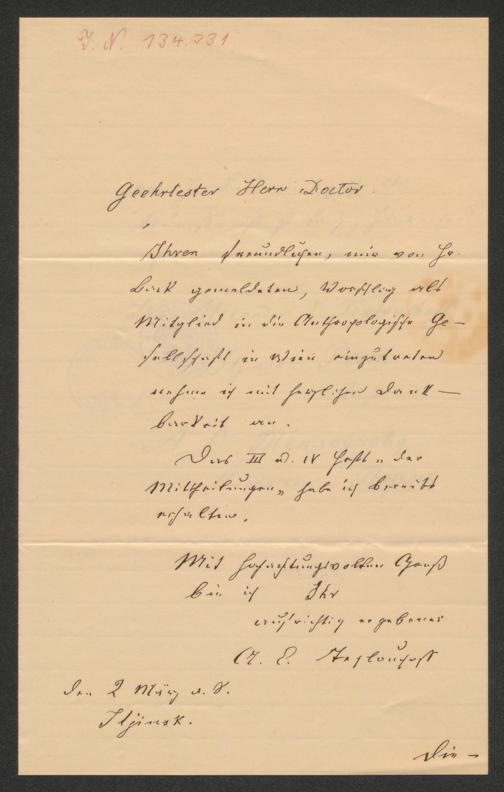 J. N. 134.331
Geehrtester Herr Doctor.
Ihren freundlichen, mir von Hr.
gemeldeten, Vorschlag als
Mitglied in die Anthropologische Ge-
sellschaft in Wien einzutreten
nehme ich mit herzlicher Dank-
barkeit an.
Das III u. IV Heft " der
Mittheilungen " habe ich bereits
erhalten.
Mit hochachtungsvollen Gruß
bin ich Ihr
aufrichtig ergebener
A. E. Teplouchoff
den 2 März a. S.
Iljinsk.
Die -